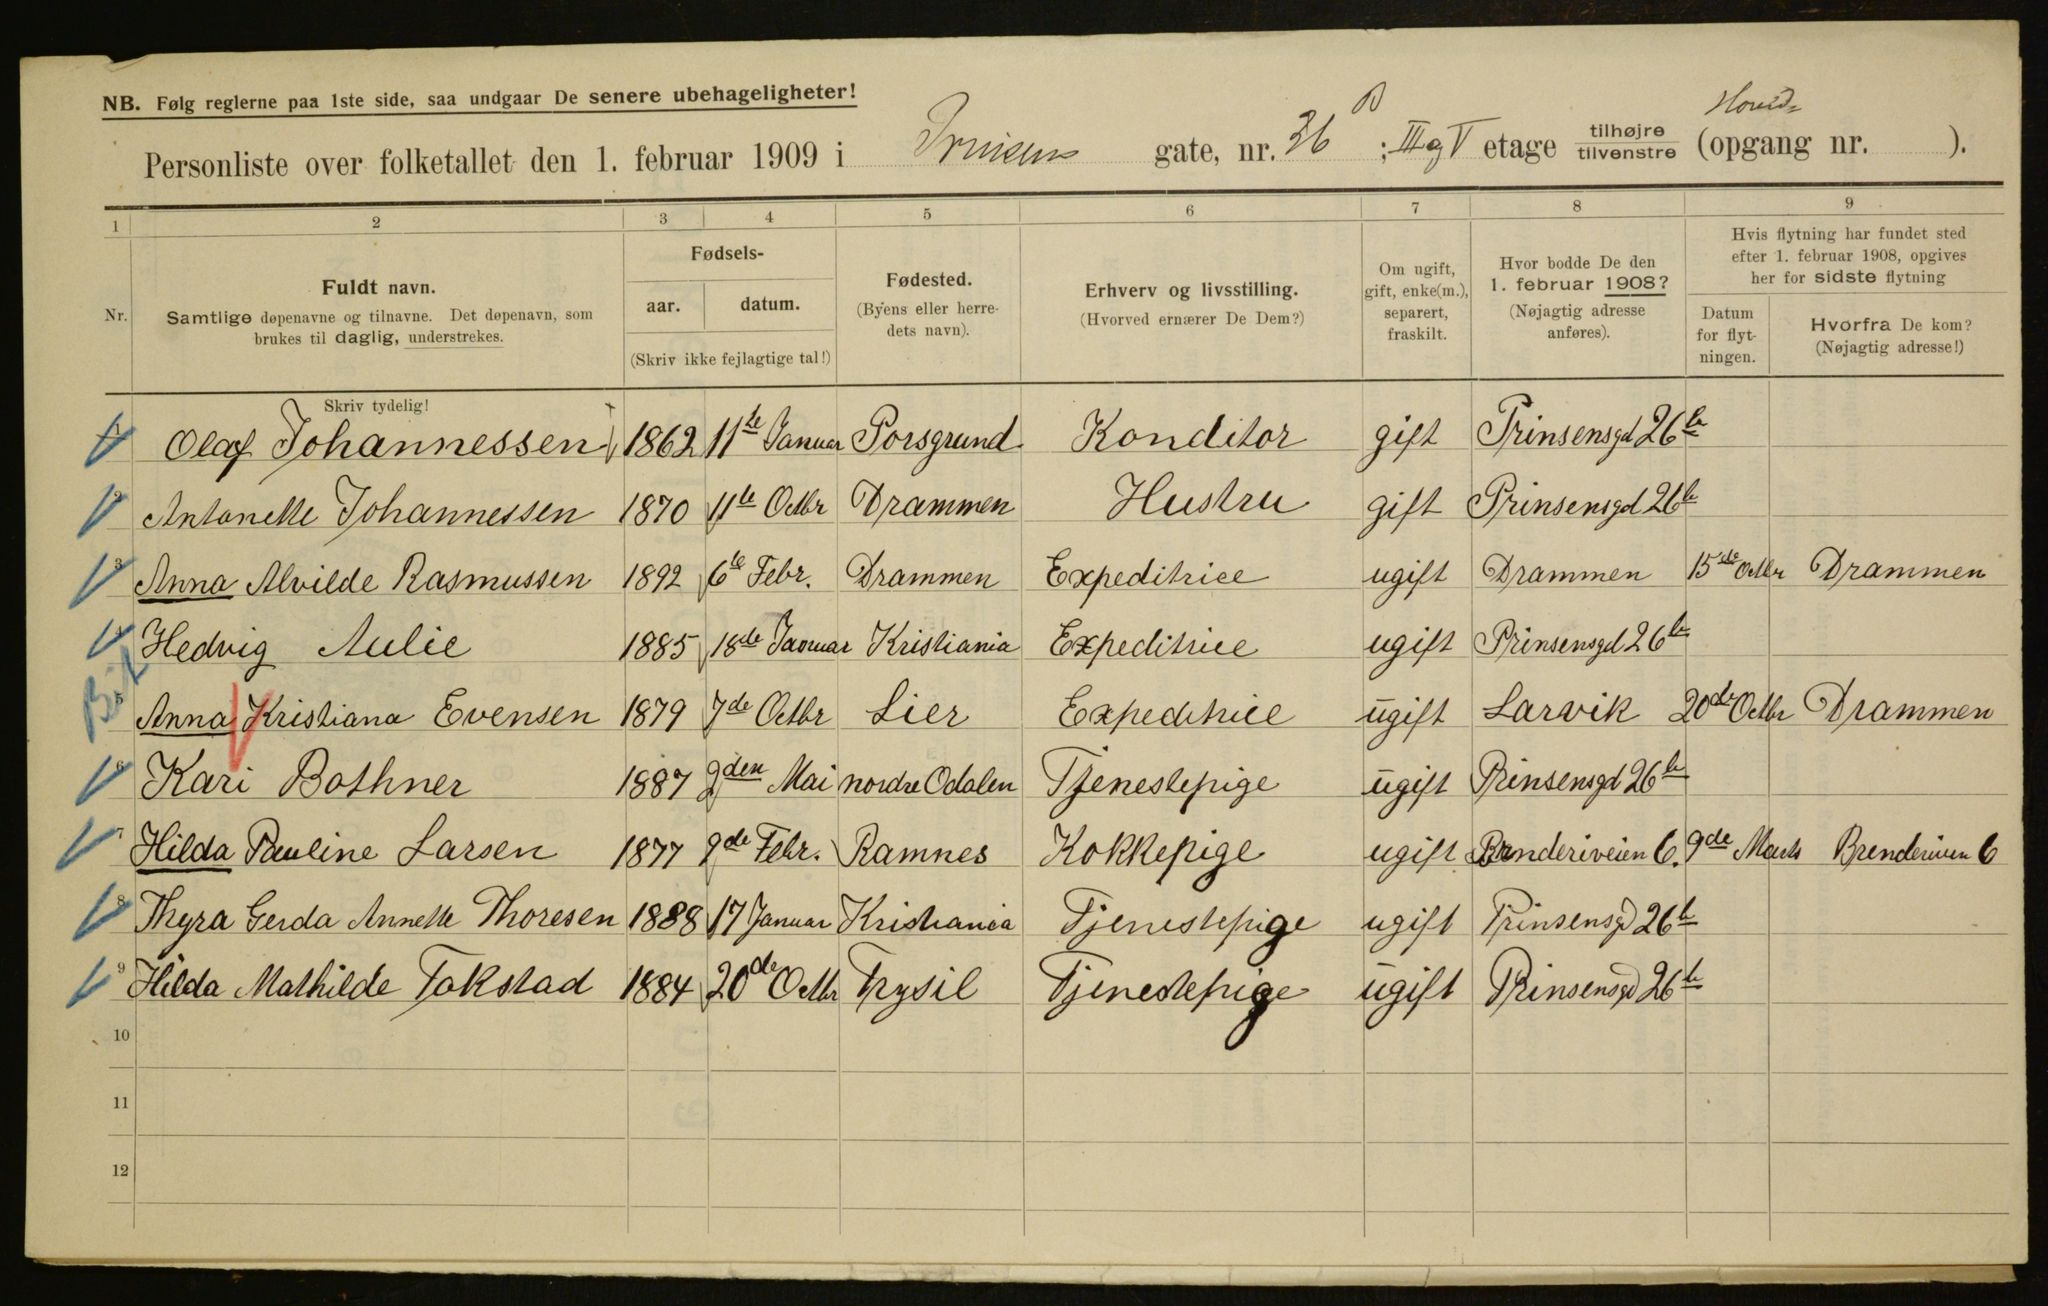 NB. Følg reglerne paa 1ste side, saa undgaar De senere ubehageligheter!
Personliste over folketallet den 1. februar 1909 i Prinsens gate, nr. 26 B ; III og V etage tilhøjre tilvenstre (opgang nr. ).
Hoved-
1 2 3 4 5 6 7 8 9
Nr.
Fuldt navn.
Samtlige døpenavne og tilnavne. Det døpenavn, som
brukes til daglig, understrekes.
Fødsels-
aar. datum.
(Skriv ikke fejlagtige tal!)
Fødested.
(Byens eller herre-
dets navn).
Erhverv og livsstilling.
(Hvorved ernærer De Dem?)
Om ugift,
gift, enke(m.),
separert,
fraskilt.
Hvor bodde De den
1. februar 1908?
(Nøjagtig adresse
anføres).
Hvis flytning har fundet sted
efter 1. februar 1908, opgives
her for sidste flytning
Datum
for flyt-
ningen.
Hvorfra De kom?
(Nøjagtig adresse!)
Skriv tydelig!
1 Olaf Johannessen 1862 11te Januar Porsgrund Konditor gift Prinsensgd 26b
2 Antonette Johannessen 1870 11te Octbr Drammen Hustru gift Prinsensgd 26b
3 Anna Alvilde Rasmussen 1892 6te Febr. Drammen Expeditrice ugift Drammen 15de Octbr Drammen
4 Hedvig Aulie 1885 18de Januar Kristiania Expeditrice ugift Prinsensgd 26b
5 Anna Kristiana Evensen 1879 7de Octbr Lier Expeditrice ugift Larvik 20de Octbr Drammen
6 Kari Bothner 1887 2den Mai nordre Odalen Tjenestepige ugift Prinsensgd 26b
7 Hilda Pauline Larsen 1877 2de Febr. Ramnes Kokkepige ugift Brenderiveien 6. 9de Marts Brenderiveien 6
8 Thyra Gerda Annette Thoresen 1888 17 Januar Kristiania Tjenestepige ugift Prinsensgd 26b
9 Hilda Mathilde Takstad 1884 20de Octbr Trysil Tjenestepige ugift Prinsensgd 26b
10
11
12